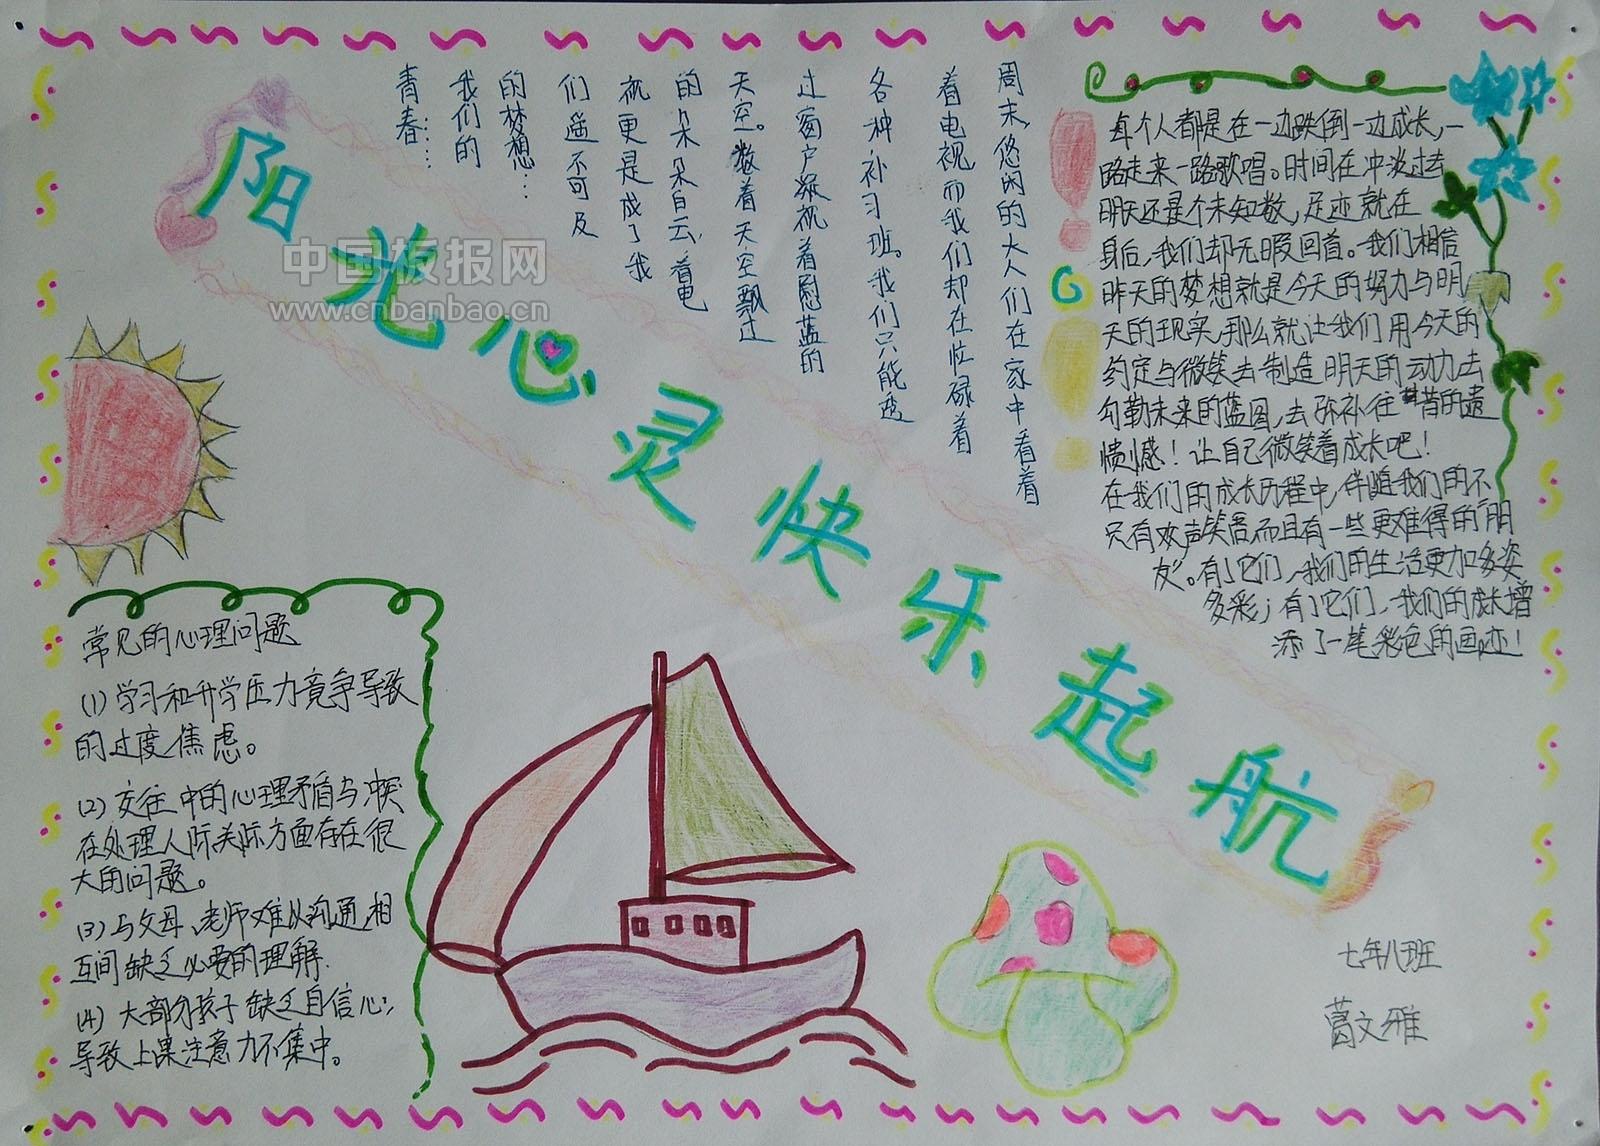 阳光心灵快乐起航
中国板报网
www.cnbanbao.cn
周末,悠闲的大人们在家中看着
着电视而我们却在忙碌着
各种补习班。我们只能透
过窗户凝视着慰蓝的
天空。数着天空飘过
的朵朵白云,着电
视更是成了我
们遥不可及
的梦想…
我们的
青春……
每个人都是在一边跌倒一边成长,一
路走来一路歌唱。时间在冲淡过去
明天还是个未知数,足迹就在
身后,我们却无暇回首。我们相信
昨天的梦想就是今天的努力与明
天的现实,那么就让我们用今天的
约定与微笑去制造明天的动力去
勾勒未来的蓝图,去弥补往昔的遗
憾！让自己微笑着成长吧！
在我们的成长历程中,伴随我们的不
只有欢声笑语而且有一些更难得的“朋
友”。有了它们,我们的生活更加多姿
多彩;有了它们,我们的成长增
添了一笔彩色的画迹！
常见的心理问题
(1)学习和升学压力竞争导致
的过度焦虑。
(2)交往中的心理矛盾与冲突
在处理人际关际方面存在很
大的问题。
(3)与父母、老师难以沟通,相
互间缺乏必要的理解.
(4)大部分孩子缺乏自信心;
导致上课注意力不集中。
七年八班
葛文雅